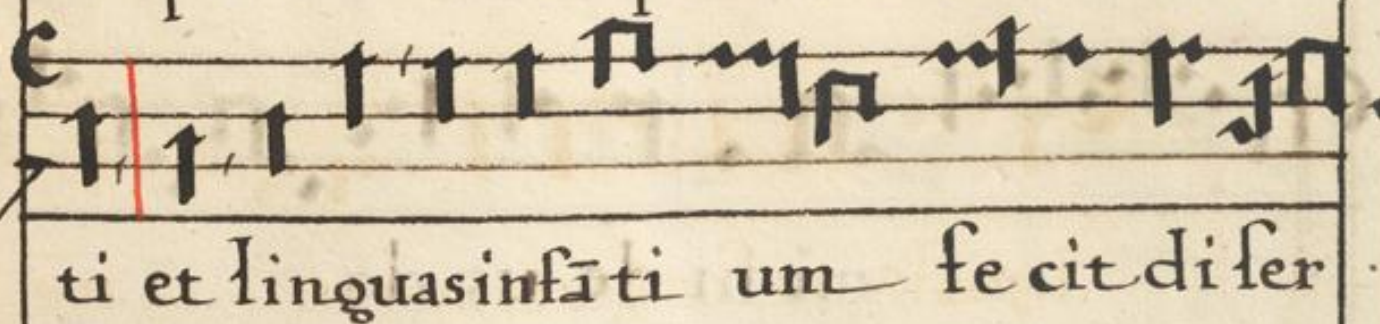 ti et linguas infā ti um fe cit di ser